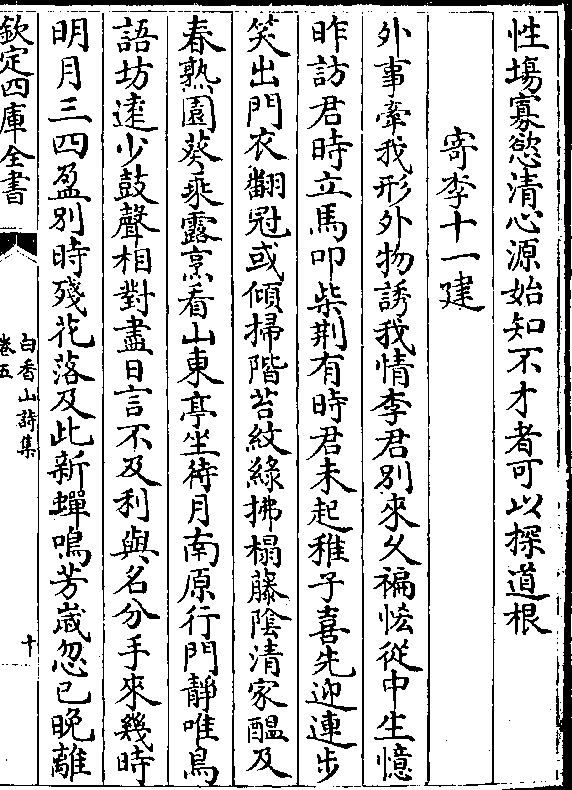 性場寡慾清心源始知不才者可以探道根
寄李十一建
外事牽我形外物誘我情李君別來久褊恡從中生憶
昨訪君時立馬叩柴荆有時君未起稚子喜先迎連步
笑出門衣翻冠或傾掃階苔紋綠拂榻藤陰清家醖及
春熟園葵乘露烹看山東亭坐待月南原行門靜唯鳥
語坊逺少鼓聲相對盡日言不及利與名分手來幾時
明月三四盈別時殘花落及此新蟬鳴芳嵗忽已晚離
欽定四庫全書
白香山詩集
卷五
十